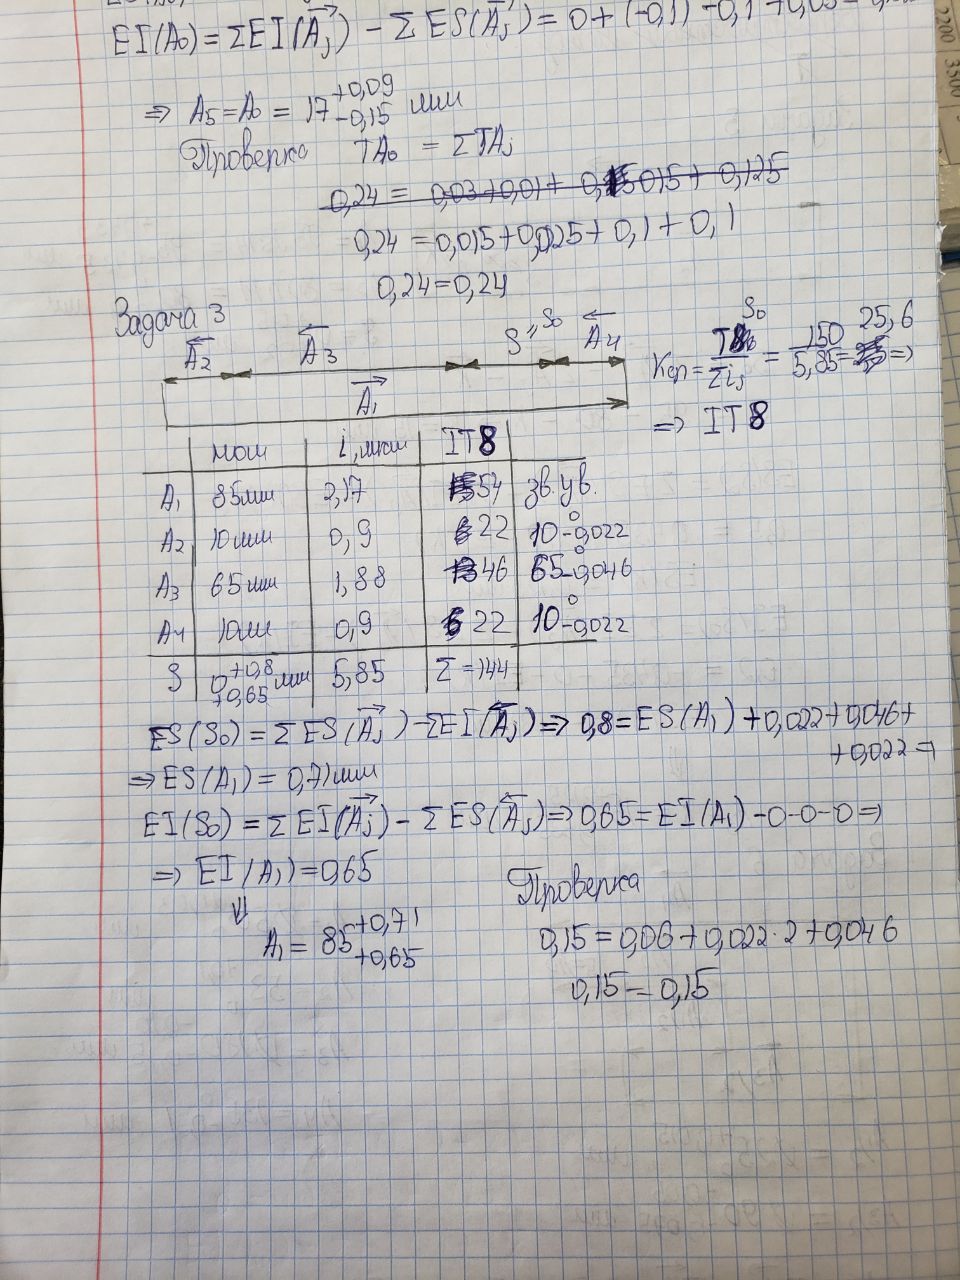 EI(A₀) = ΣEI(A⃗ⱼ) − ΣES(A⃖ⱼ) = 0 + (−0,1) − 0,1 + 0,05 =
⇒ A₅ = A₀ = 17 +0,09 −0,15 мм
Проверка TA₀ = ΣTAⱼ
0,24 = 0,03+0,01+ 0,015+ 0,125
0,24 = 0,015+0,025+ 0,1 + 0,1
0,24 = 0,24
Задача 3
A⃖₂ A⃖₃ S" S₀ A⃖₄
A⃗₁
Kср = TS₀ / Σiⱼ = 150 / 5,85 = 25,6 ⇒
⇒ IT8
мом i, мкм IT8
A₁ 85мм 2,17 54 зв. ув.
A₂ 10мм 0,9 22 10 0 −0,022
A₃ 65мм 1,88 46 65 0 −0,046
A₄ 10мм 0,9 22 10 0 −0,022
S 0 +0,8 +0,65 мм 5,85 Σ = 144
ES(S₀) = ΣES(A⃗ⱼ) − ΣEI(A⃖ⱼ) ⇒ 0,8 = ES(A₁) + 0,022 + 0,046 +
+ 0,022 ⇒
⇒ ES(A₁) = 0,71мм
EI(S₀) = ΣEI(A⃗ⱼ) − ΣES(A⃖ⱼ) ⇒ 0,65 = EI(A₁) − 0 − 0 − 0 ⇒
⇒ EI(A₁) = 0,65
⇓
A₁ = 85 +0,71 +0,65
Проверка
0,15 = 0,06 + 0,022 · 2 + 0,046
0,15 = 0,15
2200
3500